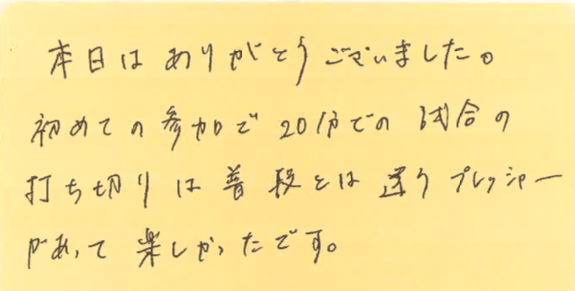 本日はありがとうございました。
初めての参加で20分での試合の
打ち切りは普段とは違うプレッシャー
があって楽しかったです。